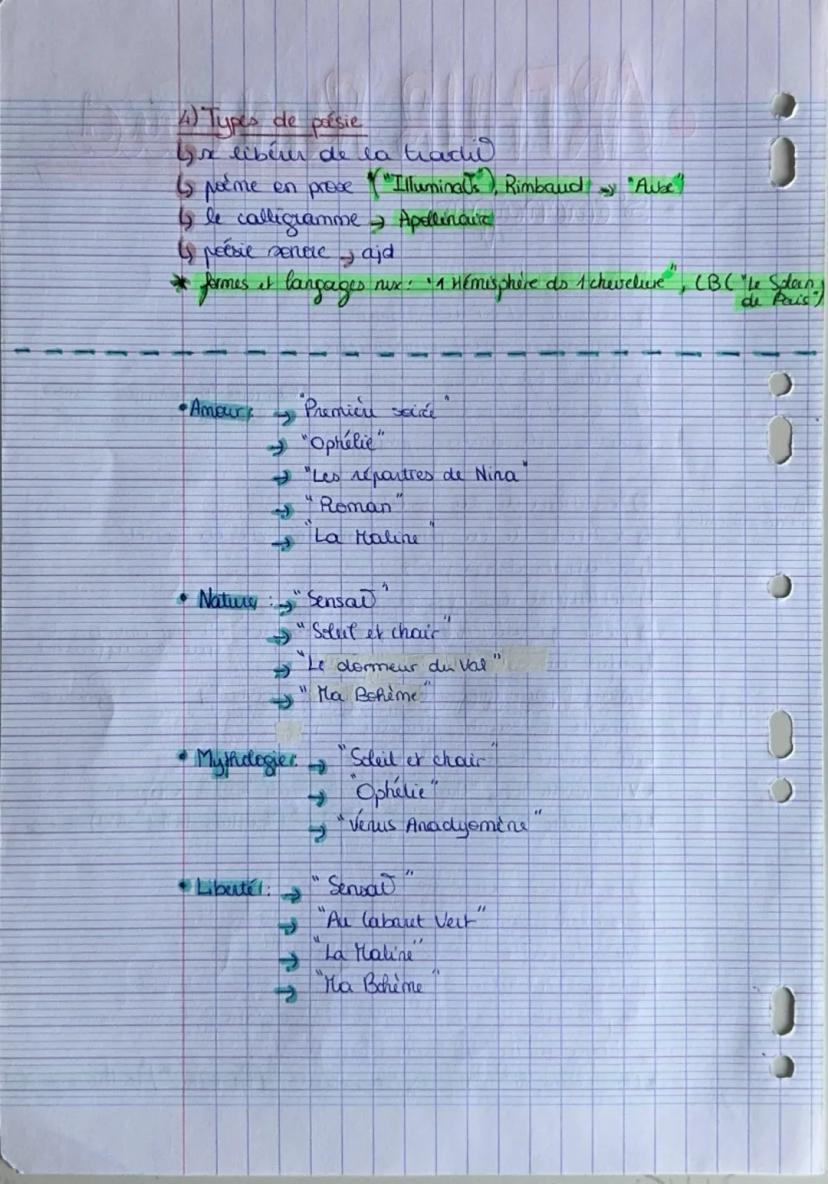 4) Types de poésie
↳ se libérer de la traditð
↳ poème en prose ("Illuminatðs"), Rimbaud → "Aube"
↳ le calligramme → Apollinaire
↳ poésie sonore → ajd
* formes et langages nvx : "1 Hémisphère ds 1 chevelure", CB ("Le Spleen de Paris")
• Amour : → "Première soirée"
→ "Ophélie"
→ "Les réparties de Nina"
→ "Roman"
→ "La Maline"
• Nature : → "Sensatð"
→ "Soleil et chair"
→ "Le dormeur du Val"
→ "Ma Bohème"
• Mythologie : → "Soleil et chair"
→ "Ophélie"
→ "Vénus Anadyomène"
• Liberté : → "Sensatð"
→ "Au Cabaret Vert"
→ "La Maline"
→ "Ma Bohème"